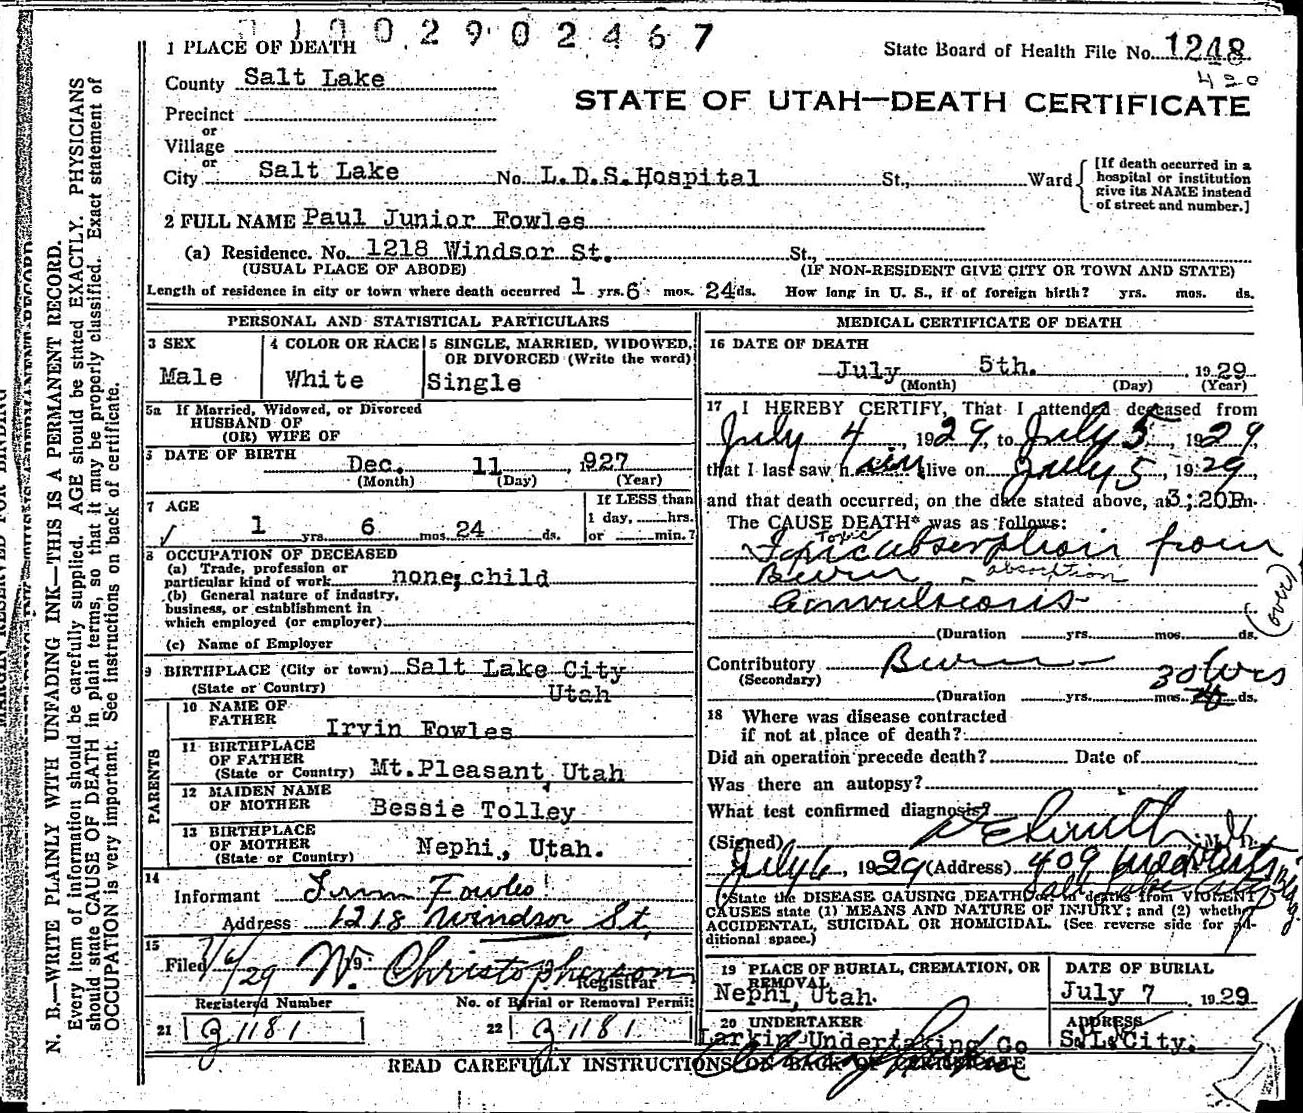 2902467
1 PLACE OF DEATH
State Board of Health File No. 1248
420
County Salt Lake
STATE OF UTAH—DEATH CERTIFICATE
Precinct
or
Village
or
City Salt Lake No. L.D.S.Hospital St., Ward
[If death occurred in a
hospital or institution
give its NAME instead
of street and number.]
2 FULL NAME Paul Junior Fowles
(a) Residence. No. 1218 Windsor St. St.,
(USUAL PLACE OF ABODE) (IF NON-RESIDENT GIVE CITY OR TOWN AND STATE)
Length of residence in city or town where death occurred 1 yrs. 6 mos. 24 ds. How long in U. S., if of foreign birth? yrs. mos. ds.
PERSONAL AND STATISTICAL PARTICULARS
3 SEX
Male
4 COLOR OR RACE
White
5 SINGLE, MARRIED, WIDOWED,
OR DIVORCED (Write the word)
Single
5a If Married, Widowed, or Divorced
HUSBAND OF
(OR) WIFE OF
DATE OF BIRTH
Dec. 11, 1927
(Month) (Day) (Year)
7 AGE
1 yrs. 6 mos. 24 ds.
If LESS than
1 day, hrs.
or min.?
8 OCCUPATION OF DECEASED
(a) Trade, profession or
particular kind of work none; child
(b) General nature of industry,
business, or establishment in
which employed (or employer)
(c) Name of Employer
9 BIRTHPLACE (City or town) Salt Lake City
(State or Country) Utah
PARENTS
10 NAME OF
FATHER Irvin Fowles
11 BIRTHPLACE
OF FATHER
(State or Country) Mt.Pleasant, Utah
12 MAIDEN NAME
OF MOTHER Bessie Tolley
13 BIRTHPLACE
OF MOTHER
(State or Country) Nephi, Utah.
14
Informant Irvin Fowles
Address 1218 Windsor St.
15
Filed 7/6/29 W. Christopherson
Registrar
Registered Number
21 1181
No. of Burial or Removal Permit
22 1181
MEDICAL CERTIFICATE OF DEATH
16 DATE OF DEATH
July 5th. , 1929
(Month) (Day) (Year)
17 I HEREBY CERTIFY, That I attended deceased from
July 4, 1929, to July 5, 1929,
that I last saw him alive on July 5, 1929,
and that death occurred, on the date stated above, at 3:20P m.
The CAUSE DEATH* was as follows:
Toxic
Toxic absorption from
Burn absorption
Convulsions
(over)
(Duration yrs. mos. ds.
Contributory Burn
(Secondary) 30 hrs
(Duration yrs. mos. ds.
18 Where was disease contracted
if not at place of death?
Did an operation precede death? Date of
Was there an autopsy?
What test confirmed diagnosis?
(Signed) M. D.
July 6, 1929 (Address) 409
Salt Lake City
(*State the DISEASE CAUSING DEATH, or in deaths from VIOLENT
CAUSES state (1) MEANS AND NATURE OF INJURY; and (2) whether
ACCIDENTAL, SUICIDAL OR HOMICIDAL. (See reverse side for ad-
ditional space.)
19 PLACE OF BURIAL, CREMATION, OR
REMOVAL
Nephi, Utah.
DATE OF BURIAL
July 7, 1929
20 UNDERTAKER
Larkin Undertaking Co
ADDRESS
S.L.City.
READ CAREFULLY INSTRUCTIONS ON BACK OF CERTIFICATE
MARGIN RESERVED FOR BINDING
N. B.—WRITE PLAINLY WITH UNFADING INK—THIS IS A PERMANENT RECORD.
Every item of information should be carefully supplied. AGE should be stated EXACTLY. PHYSICIANS
should state CAUSE OF DEATH in plain terms, so that it may be properly classified. Exact statement of
OCCUPATION is very important. See instructions on back of certificate.